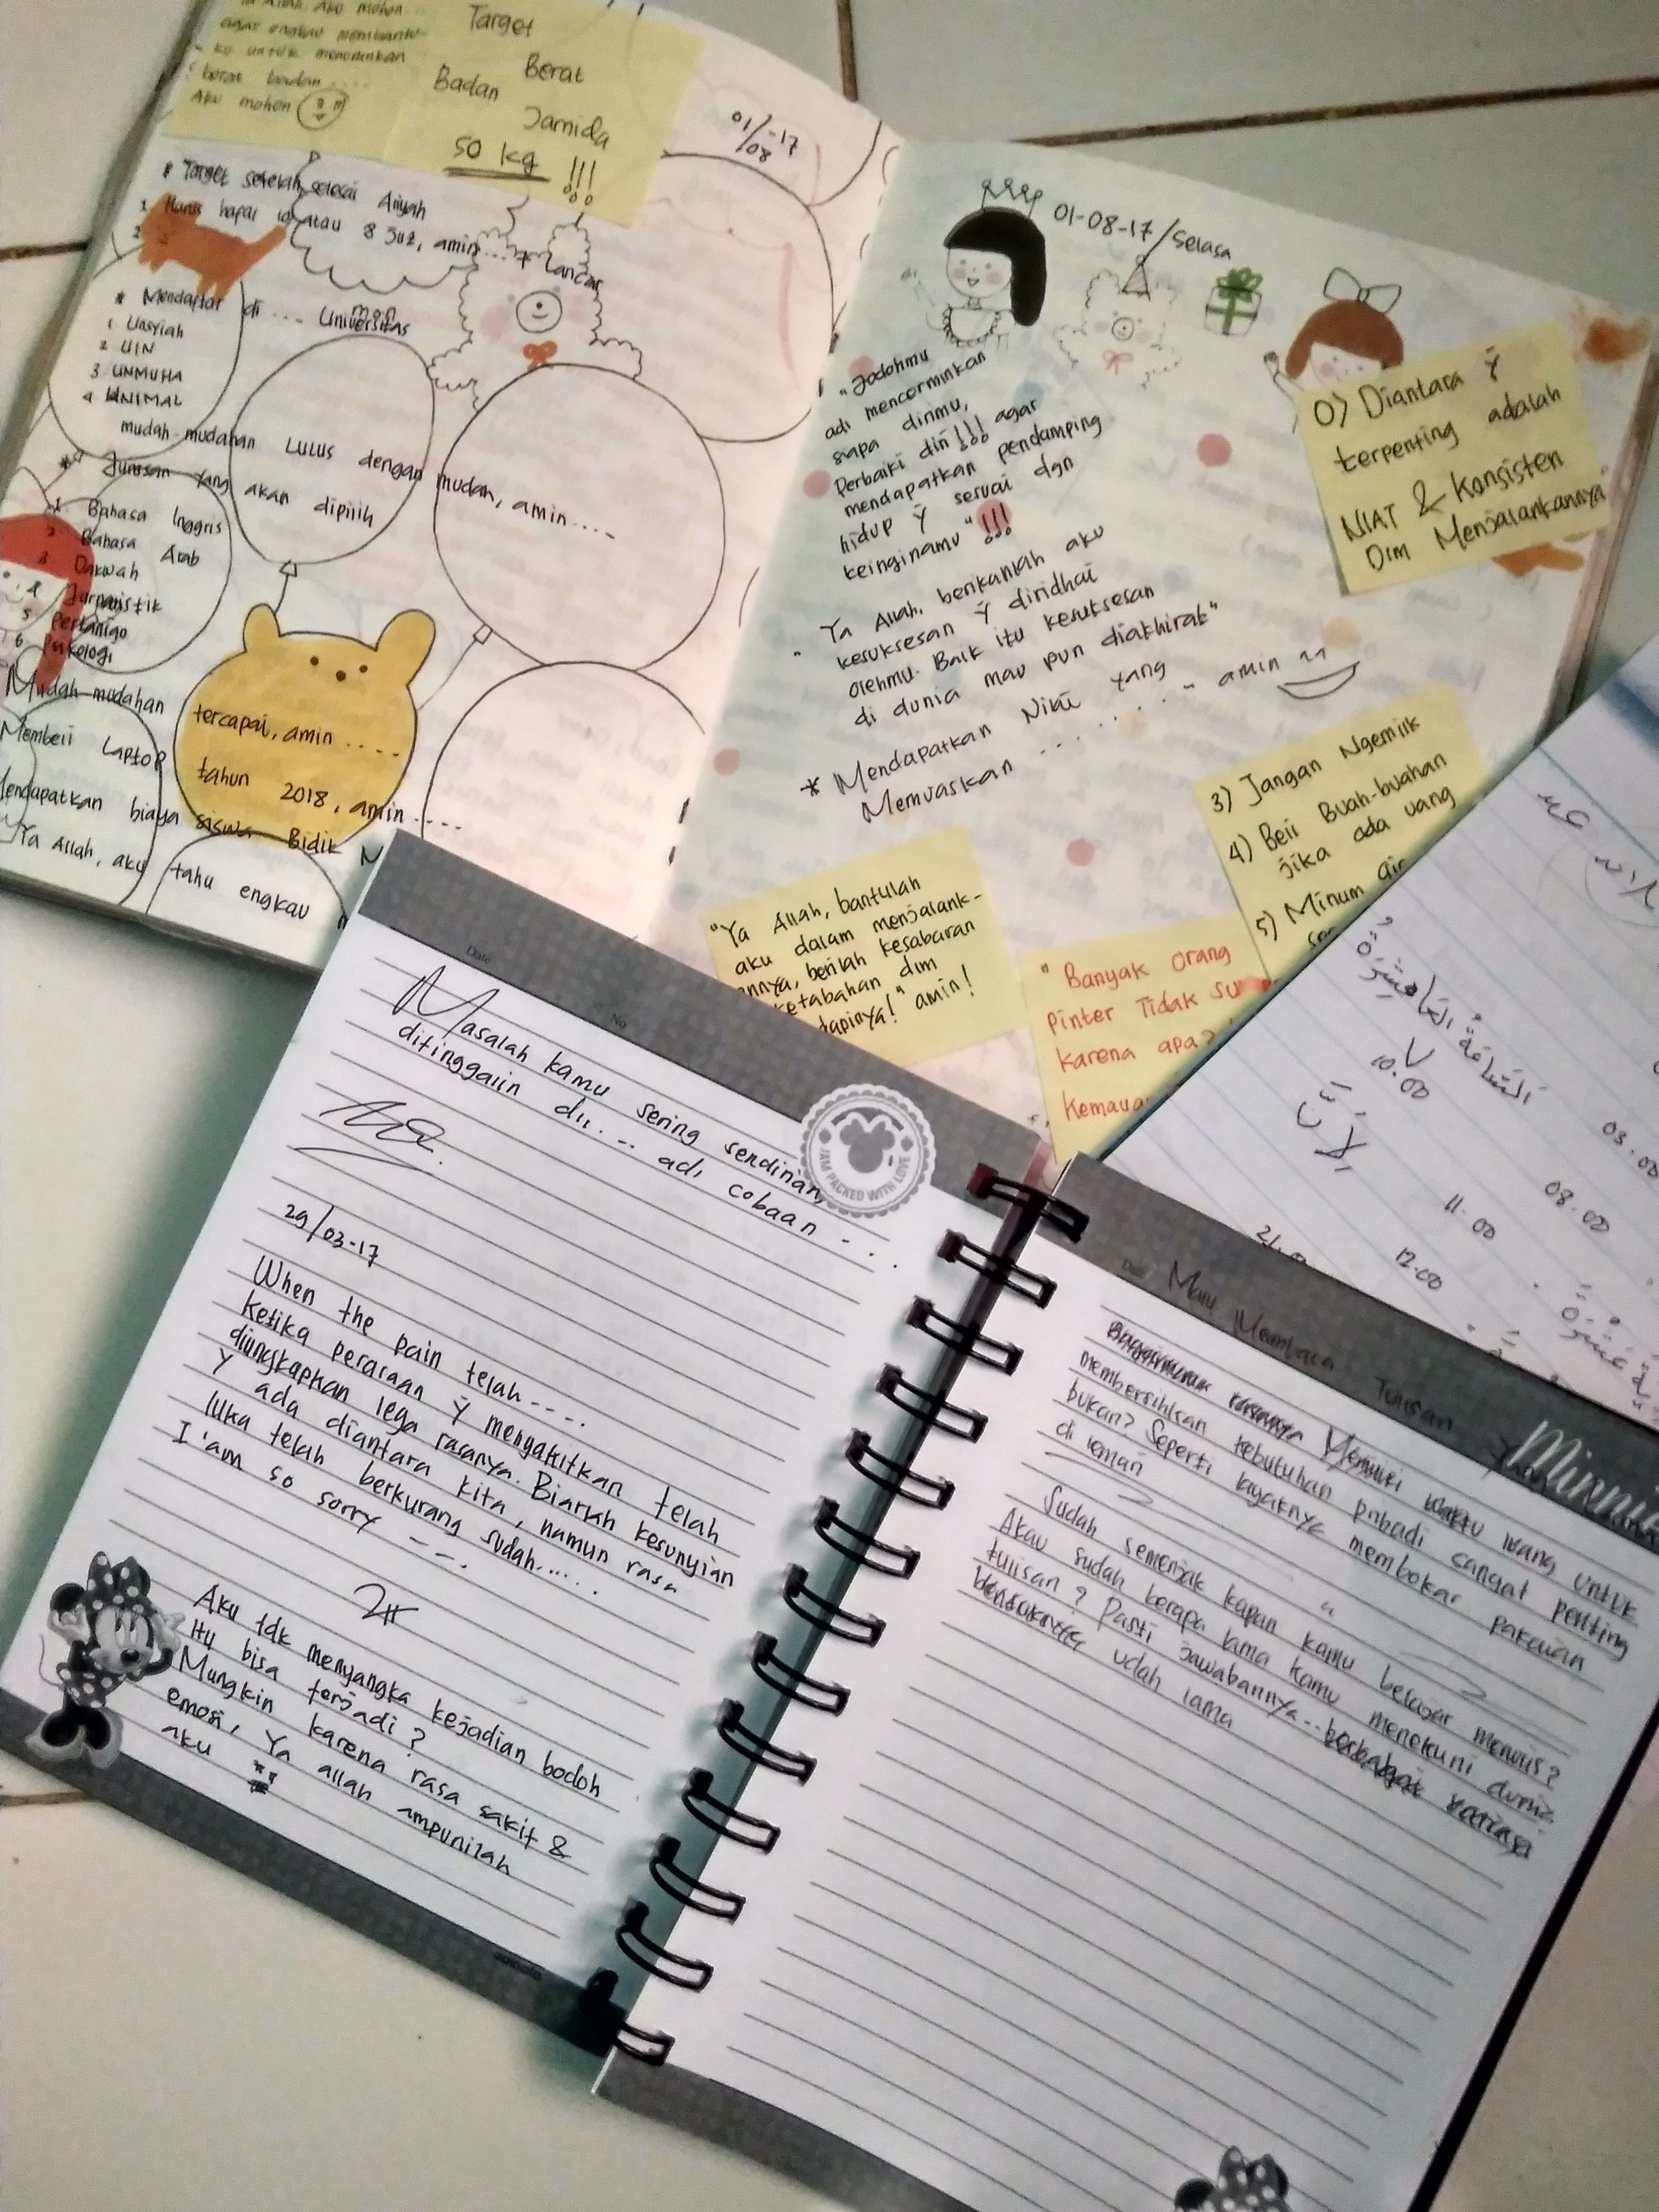 Ya Allah. Aku mohon
agar engkau membantu-
ku untuk menaikkan
berat badan....
Aku mohon
Target
Berat
Badan
Jamida
50 kg !!!
01/08-17
* Target setelah selesai Aliyah
1 Harus hapal 10 atau 8 Juz, amin.... + lancar
2
* Mendaftar di .... Universitas
1 Unsyiah
2 UIN
3 UNMUHA
4 UNIMAL
mudah-mudahan LULUS dengan mudah, amin....
* Jurusan yang akan dipilih
1 Bahasa Inggris
2 Bahasa Arab
3 Dakwah
4 Jurnalistik
5 Pertanian
6 Psikologi
Mudah-mudahan tercapai, amin ....
Membeli Laptop tahun 2018, amin ....
Mendapatkan biaya siswa Bidik M
Ya Allah, aku tahu engkau
01-08-17/Selasa
"Jodohmu
adl mencerminkan
siapa dirimu,
Perbaiki diri!!! agar
mendapatkan pendamping
hidup ȳ sesuai dgn
keinginamu"!!!
"Ya Allah, berikanlah aku
kesuksesan ȳ diridhai
olehmu. Baik itu kesuksesan
di dunia mau pun diakhirat"
amin
* Mendapatkan Nilai yang
Memuaskan ........
0) Diantara ȳ
terpenting adalah
NIAT & Konsisten
Dlm Menjalankannya
3) Jangan Ngemilk
4) Beli Buah-buahan
jika ada uang
5) Minum air
"Ya Allah, bantulah
aku dalam menjalank-
annya, berilah kesabaran
ketabahan dlm
dapinya!" amin!
"Banyak orang
pinter Tidak su
karena apa?
Kemaua
السَّاعَةُ العَاشِرَةُ
10.00
03.00
08.00
11.00
12.00
Date
No
Masalah kamu sering sendirian,
ditinggalin dll.... adl cobaan ...
JAM PACKED WITH LOVE
29/03-17
When the pain telah....
Ketika perasaan ȳ menyakitkan telah
diungkapkan lega rasanya. Biarlah kesunyian
ȳ ada diantara kita, namun rasa
luka telah berkurang sudah......
I'am so sorry ---.
Aku tdk menyangka kejadian bodoh
itu bisa terjadi?
Mungkin karena rasa sakit &
emosi, Ya allah ampunilah
aku
Date
Mau Membaca Tulisan
Minnie
Memiliki waktu luang untuk
membersihkan kebutuhan pribadi sangat penting
bukan? Seperti layaknya membokar pakaian
di lemari
Sudah semenjak kapan kamu belajar menulis?
Akau sudah berapa lama kamu menekuni dunia
tulisan? Pasti jawabannya...
udah lama